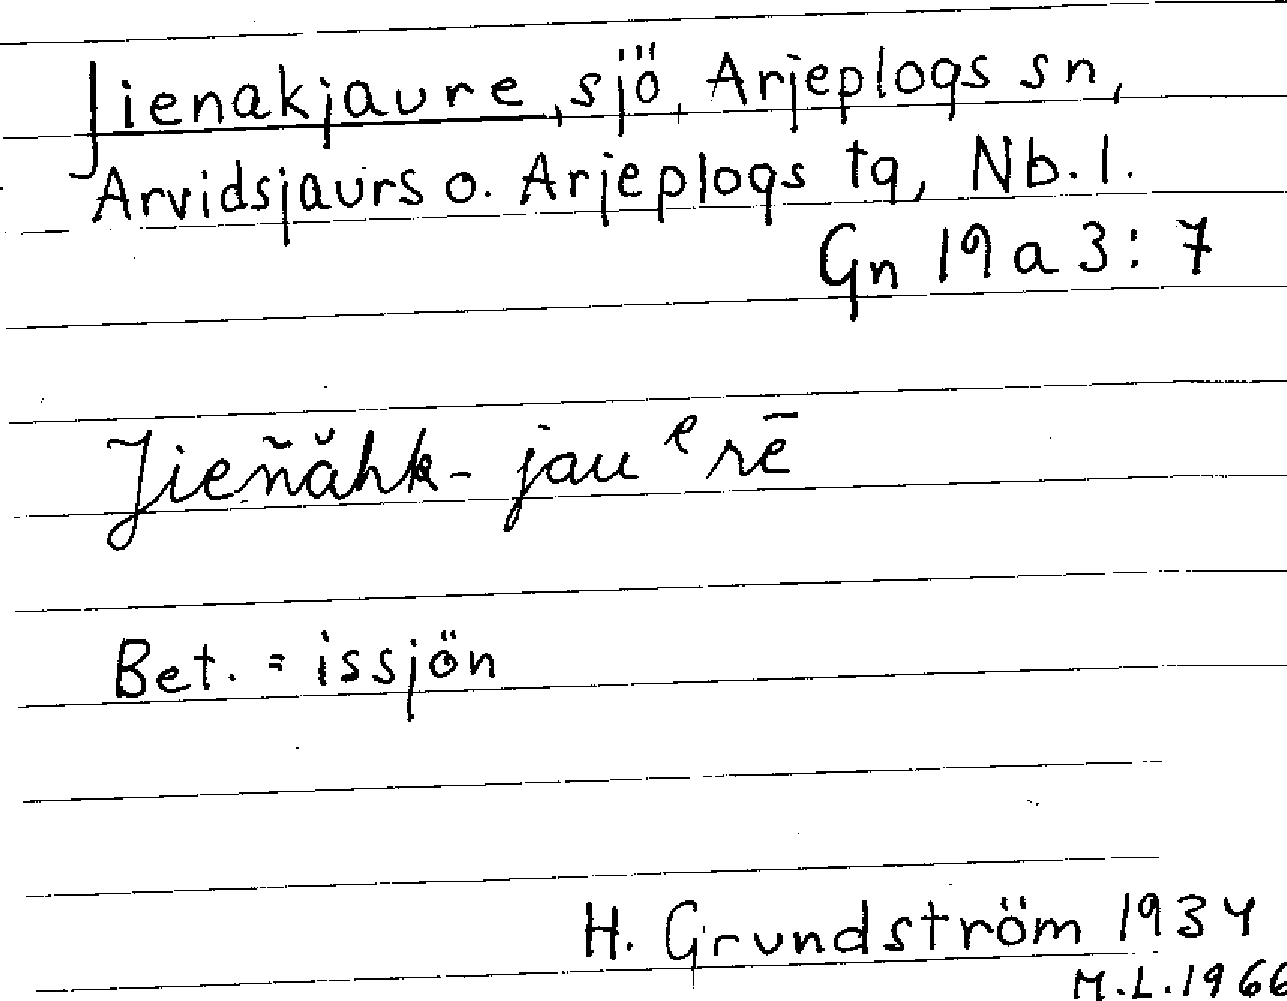 Jienakjaure, sjö, Arjeplogs sn,
Arvidsjaurs o. Arjeplogs tg, Nb. l.
Gn 19 a 3 : 7
Jieñăhk- jauᵉrē
Bet. = issjön
H. Grundström 1934
M.L. 1966